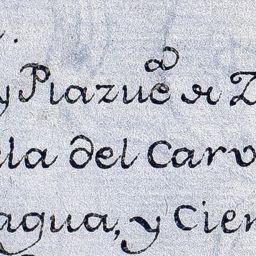 y Plazueᵃ
la del Carv
agua, y Cien